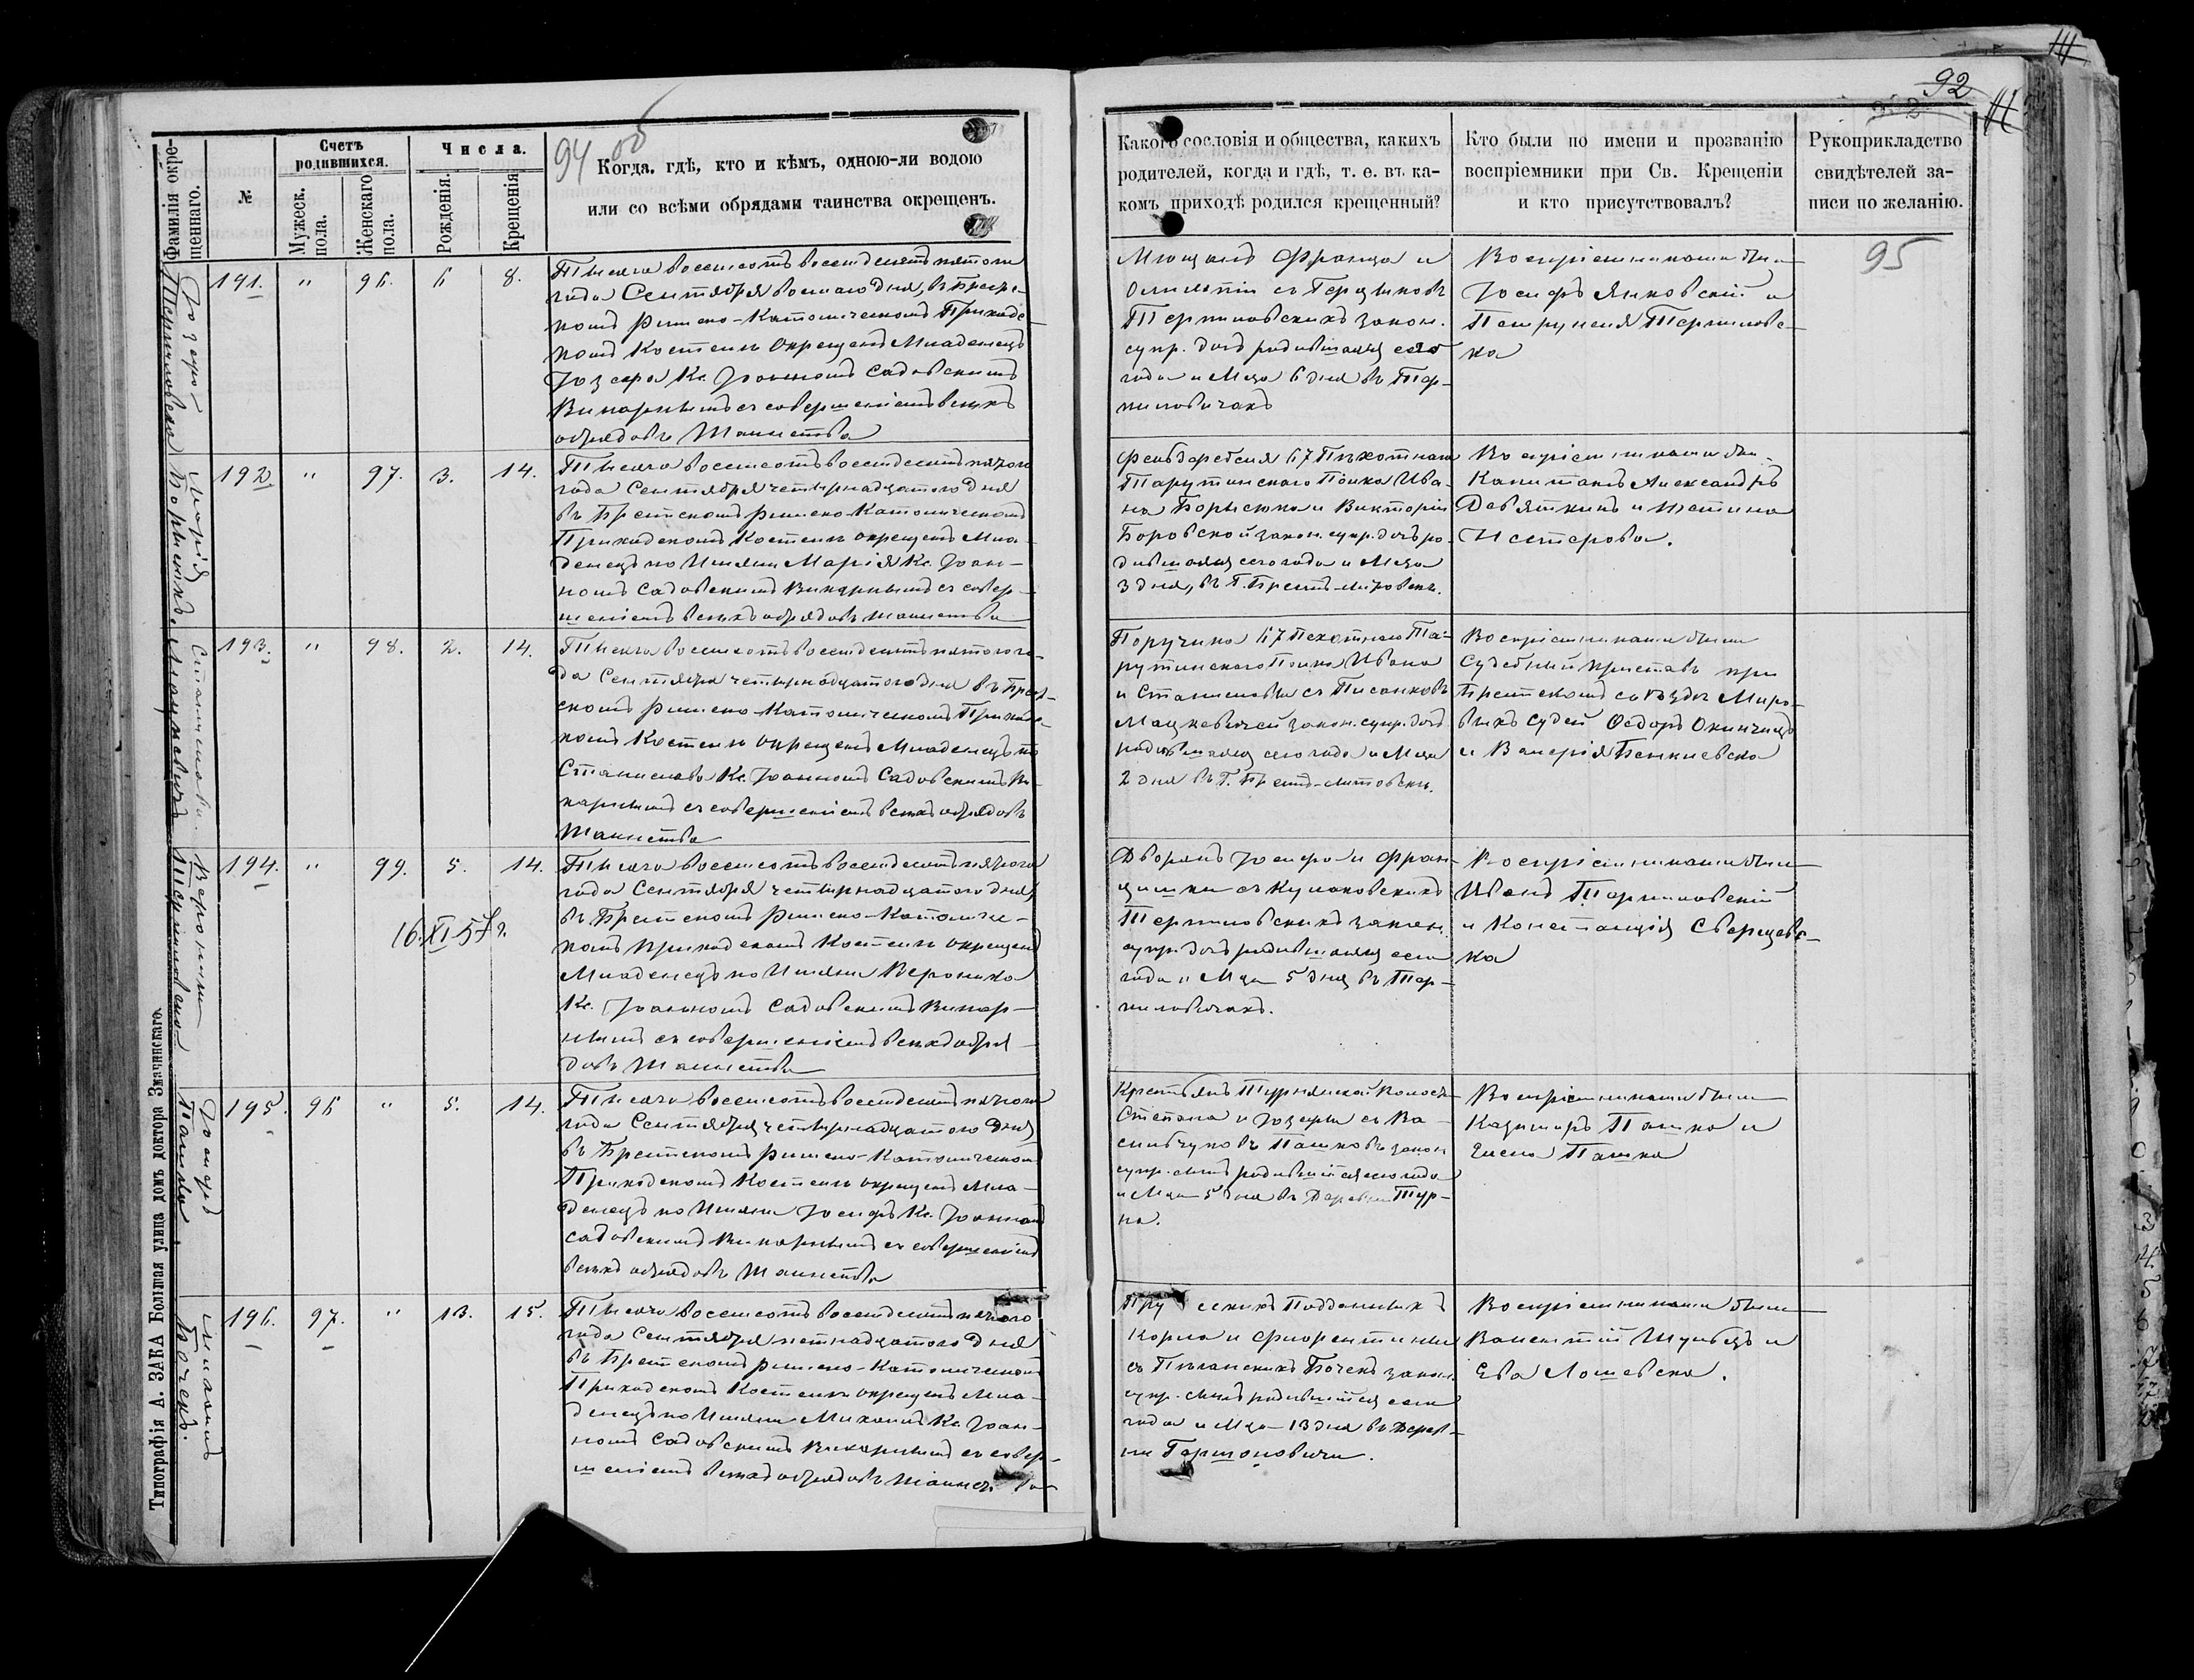 94 об
Фамилія окрещеннаго.
№
Счетъ родившихся.
Мужеск. пола.
Женскаго пола.
Числа.
Рожденія.
Крещенія
Когда, гдѣ, кто и кѣмъ, одною-ли водою
или со всѣми обрядами таинства окрещенъ.
Юзефа
191. " 96. 6 8.
Тысяча восемьсотъ восемдесятъ пятого
года Сентября восмаго дня, въ Брест-
комъ Римско-Католическомъ Приходс-
комъ Костелѣ Окрещенъ Младенецъ
Юзефа Кс. Іоанномъ Садовскимъ
Викарнымъ съ совершеніемъ всѣхъ
обрядовъ Таинства
Марія
Борысюкъ
192 " 97. 3. 14.
Тысяча восемсотъ восемдесятъ пятого
года Сентября четырнадцатого дня
въ Брестскомъ Римско-Католическомъ
Приходскомъ Костелѣ окрещенъ Мла-
денецъ по Имени Марія Кс. Іоан-
номъ Садовскимъ Викарнымъ съ совер-
шеніемъ всѣхъ обрядовъ таинства
Станислава
Мацкевичъ
193. " 98. 2. 14.
Тысяча восемсотъ восемдесятъ пятого го-
да Сентября четырнадцатого дня въ Брест-
скомъ Римско-Католическомъ Приходс-
комъ Костелѣ окрещенъ Младенецъ по
Станислава Кс. Іоанномъ Садовскимъ Ви-
карнымъ съ совершеніемъ всѣхъ обрядовъ
Таинства
Вероника
194. " 99. 5. 14.
16.XI-57г.
Тысяча восемсотъ восемдесятъ пятого
года Сентября четырнадцатого дня,
въ Брестскомъ Римско-Католичес-
комъ приходскомъ Костелѣ окрещенъ
Младенецъ по Имени Вероника
Кс. Іоанномъ Садовскимъ Викар-
нымъ съ совершеніемъ всѣхъ обря-
довъ Таинства
Іосифъ
Пашко
195. 96 " 5. 14.
Тысяча восемсотъ восемдесятъ пятого
года Сентября четырнадцатого дня
въ Брестскомъ Римско-Католическомъ
Приходскомъ Костелѣ окрещенъ Мла-
денецъ по Имени Іосифъ Кс. Іоанномъ
Садовскимъ Викарнымъ съ совершеніемъ
всѣхъ обрядовъ Таинства
Михаилъ
Бочекъ.
196. 97. " 13. 15.
Тысяча восемсотъ восемдесятъ пятого
года Сентября пятнадцатого дня
въ Брестскомъ Римско-Католическомъ
Приходскомъ Костелѣ окрещенъ Мла-
денецъ по Имени Михаилъ Кс. Іоан-
номъ Садовскимъ Викарнымъ съ совер-
шеніемъ всѣхъ обрядовъ Таинст
Типографія А. ЗАКА Большая улица домъ доктора Значинскаго.
92
Какого сословія и общества, какихъ
родителей, когда и гдѣ, т. е. въ ка-
комъ приходѣ родился крещенный?
Кто были по имени и прозванію
воспріемники при Св. Крещеніи
и кто присутствовалъ?
Рукоприкладство
свидѣтелей за-
писи по желанію.
95
Мѣщанъ Франца и
законн.
супр. дочь родившаяся сего
года и Мца 6 дня въ Тер-
миловичахъ
Воспріемниками были
Іосифъ Янковскій и
Петрунеля Термиловс-
ка
Фельдфебеля 67 Пѣхотнаго
Тарутинскаго Полка Ива-
на Борысюка и Викторіи
Боровской закон. супр. дочь ро-
дившаяся сего года и Мца
3 дня, въ Г. Брестъ-Литовскѣ.
Воспріемниками бы-
Капитанъ Александръ
Девяткинъ и
Нестерова.
Поручика 67 Пехотнаго Та-
рутинскаго Полка Ивана
и Станиславы съ Писанковъ
Мацкевичей закон. супр. дочь
родившаяся сего года и Мца
2 дня въ Г. Брестъ-Литовскѣ.
Воспріемниками были
Судебный приставъ при
Брестскомъ съѣздѣ Миро-
выхъ Судей Федоръ Окинчицъ
и Валерія Бенкиевска
Дворянъ Іосифа и Фран-
цишки съ Кулаковскихъ
Термиловскихъ закон.
супр. дочь родившаяся сего
года и Мца 5 дня въ Тер-
миловичахъ.
Воспріемниками были
Иванъ Термиловскій
и Констанція Сверщевс-
ка
Крестьянъ Турнянской Волости
Степана и Юзефы съ Ва-
сильчуковъ Пашковъ закон
супр. сынъ родившійся сего года
и Мца 5 дня въ Деревни Тур-
на.
Воспріемниками были
Казимиръ Пашко и
Елена Пашко
Прусскихъ Подданныхъ
Карла и Флорентины
Бочекъ закон.
супр. сынъ родившійся сего
года и Мца 13 дня въ Дерев-
ни Гершоновичи.
Воспріемниками были
Валентій Шульцъ и
Ева Лошевска.